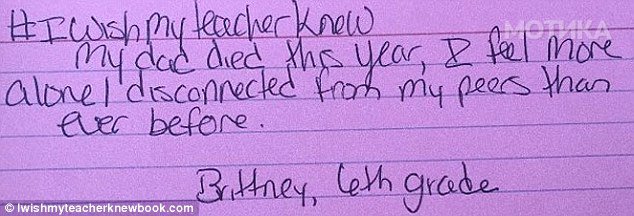 #IWishmyteacherknew
МОТИКА
my dad died this year, I feel more
alone/disconnected from my peers than
ever before.
Brittney, 6th grade
© Iwishmyteacherknewbook.com